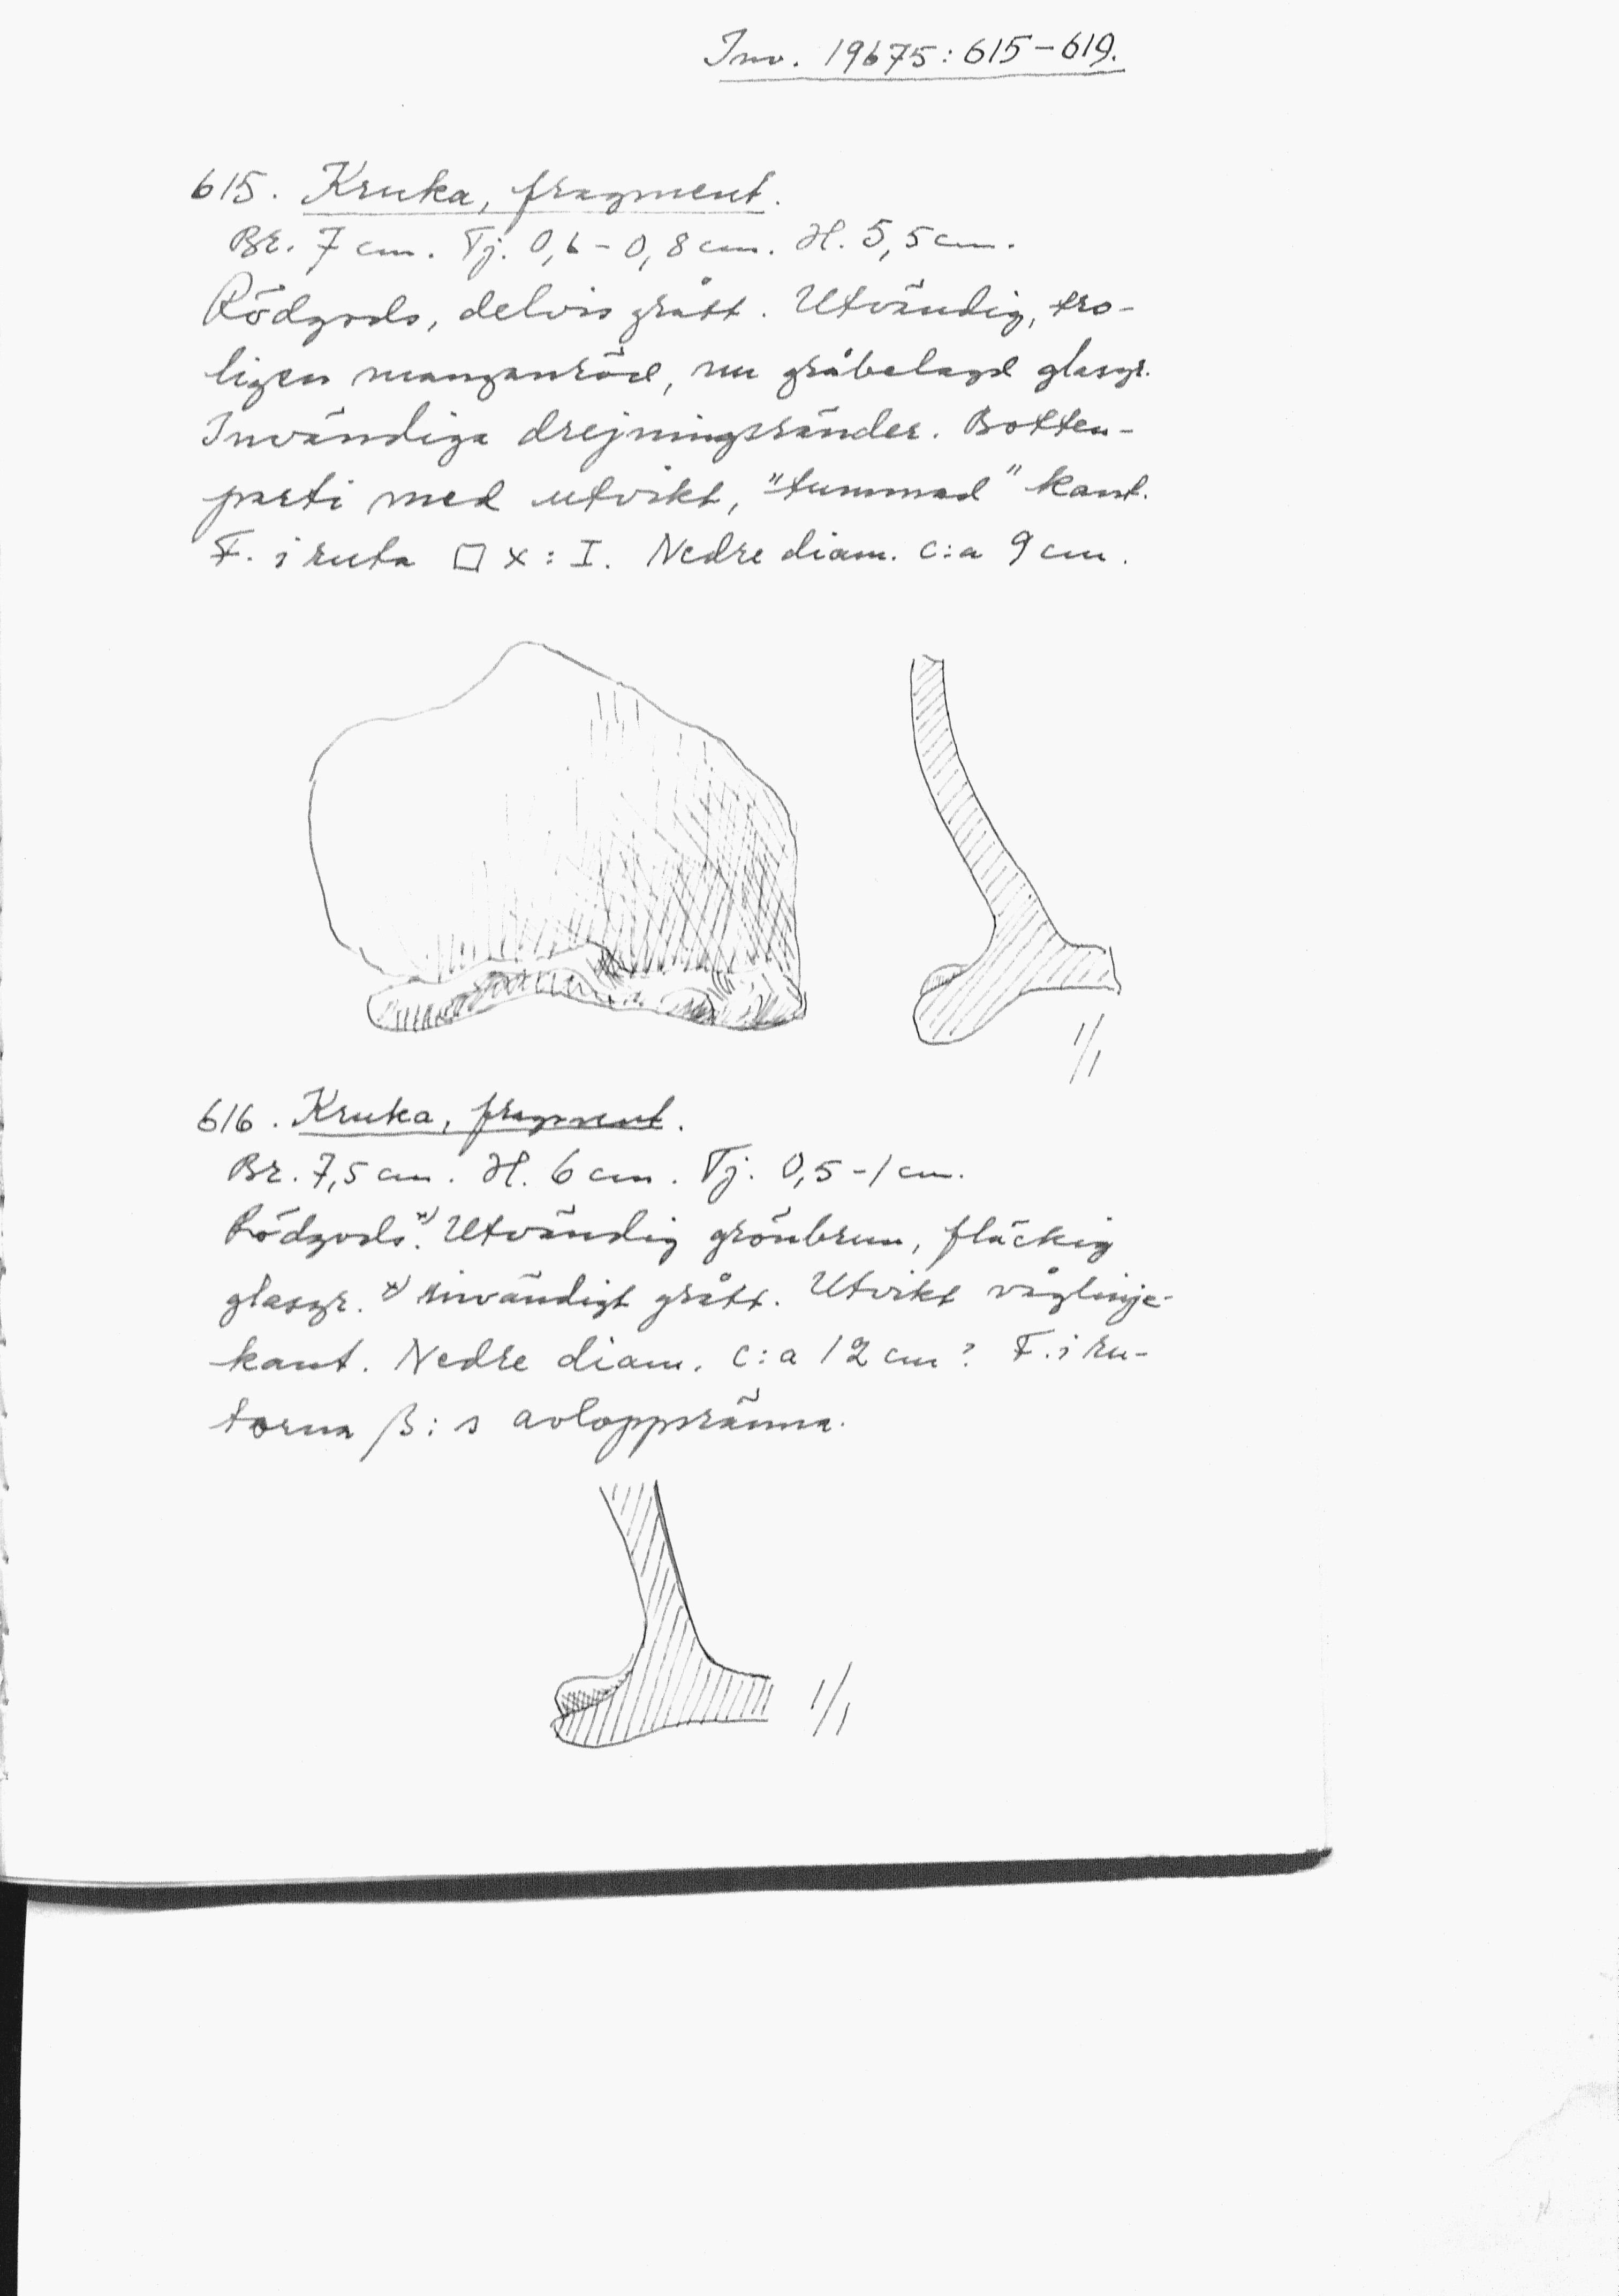 Inv. 19675:615-619.
615. Kruka, fragment.
Br. 7 cm. Tj. 0,6-0,8 cm. H. 5,5 cm.
Rödgods, delvis grått. Utvändig, tro-
ligen manganröd, nu gråbelagd glasyr.
Invändiga drejningsränder. Botten-
parti med utvikt, "tummad" kant.
F. i ruta □ x: I. Nedre diam. c:a 9 cm.
1/1
616. Kruka, fragment.
Br. 7,5 cm. H. 6 cm. Tj. 0,5-1 cm.
Rödgods.x) Utvändig grönbrun, fläckig
glasyr. x) invändigt grått. Utvikt våglinje-
kant. Nedre diam. c:a 12 cm? F. i ru-
torna β: s avloppsränna.
1/1